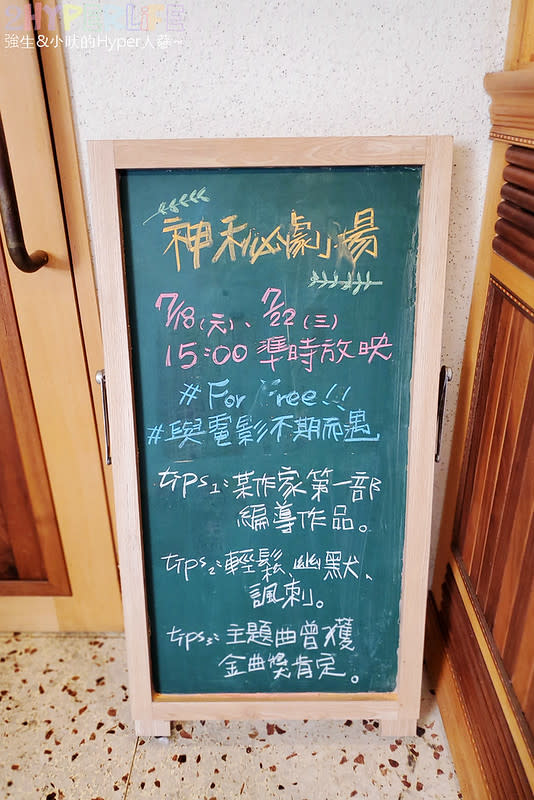 HYPERLIFE
強生&小吠的Hyper人蔘~
神秘劇場
7/18(六)、7/22(三)
15:00 準時放映
#For Free!!
#與電影不期而遇
tips1:某作家第一部
編導作品。
tips2:輕鬆、幽默、
諷刺。
tips3:主題曲曾獲
金曲獎肯定。